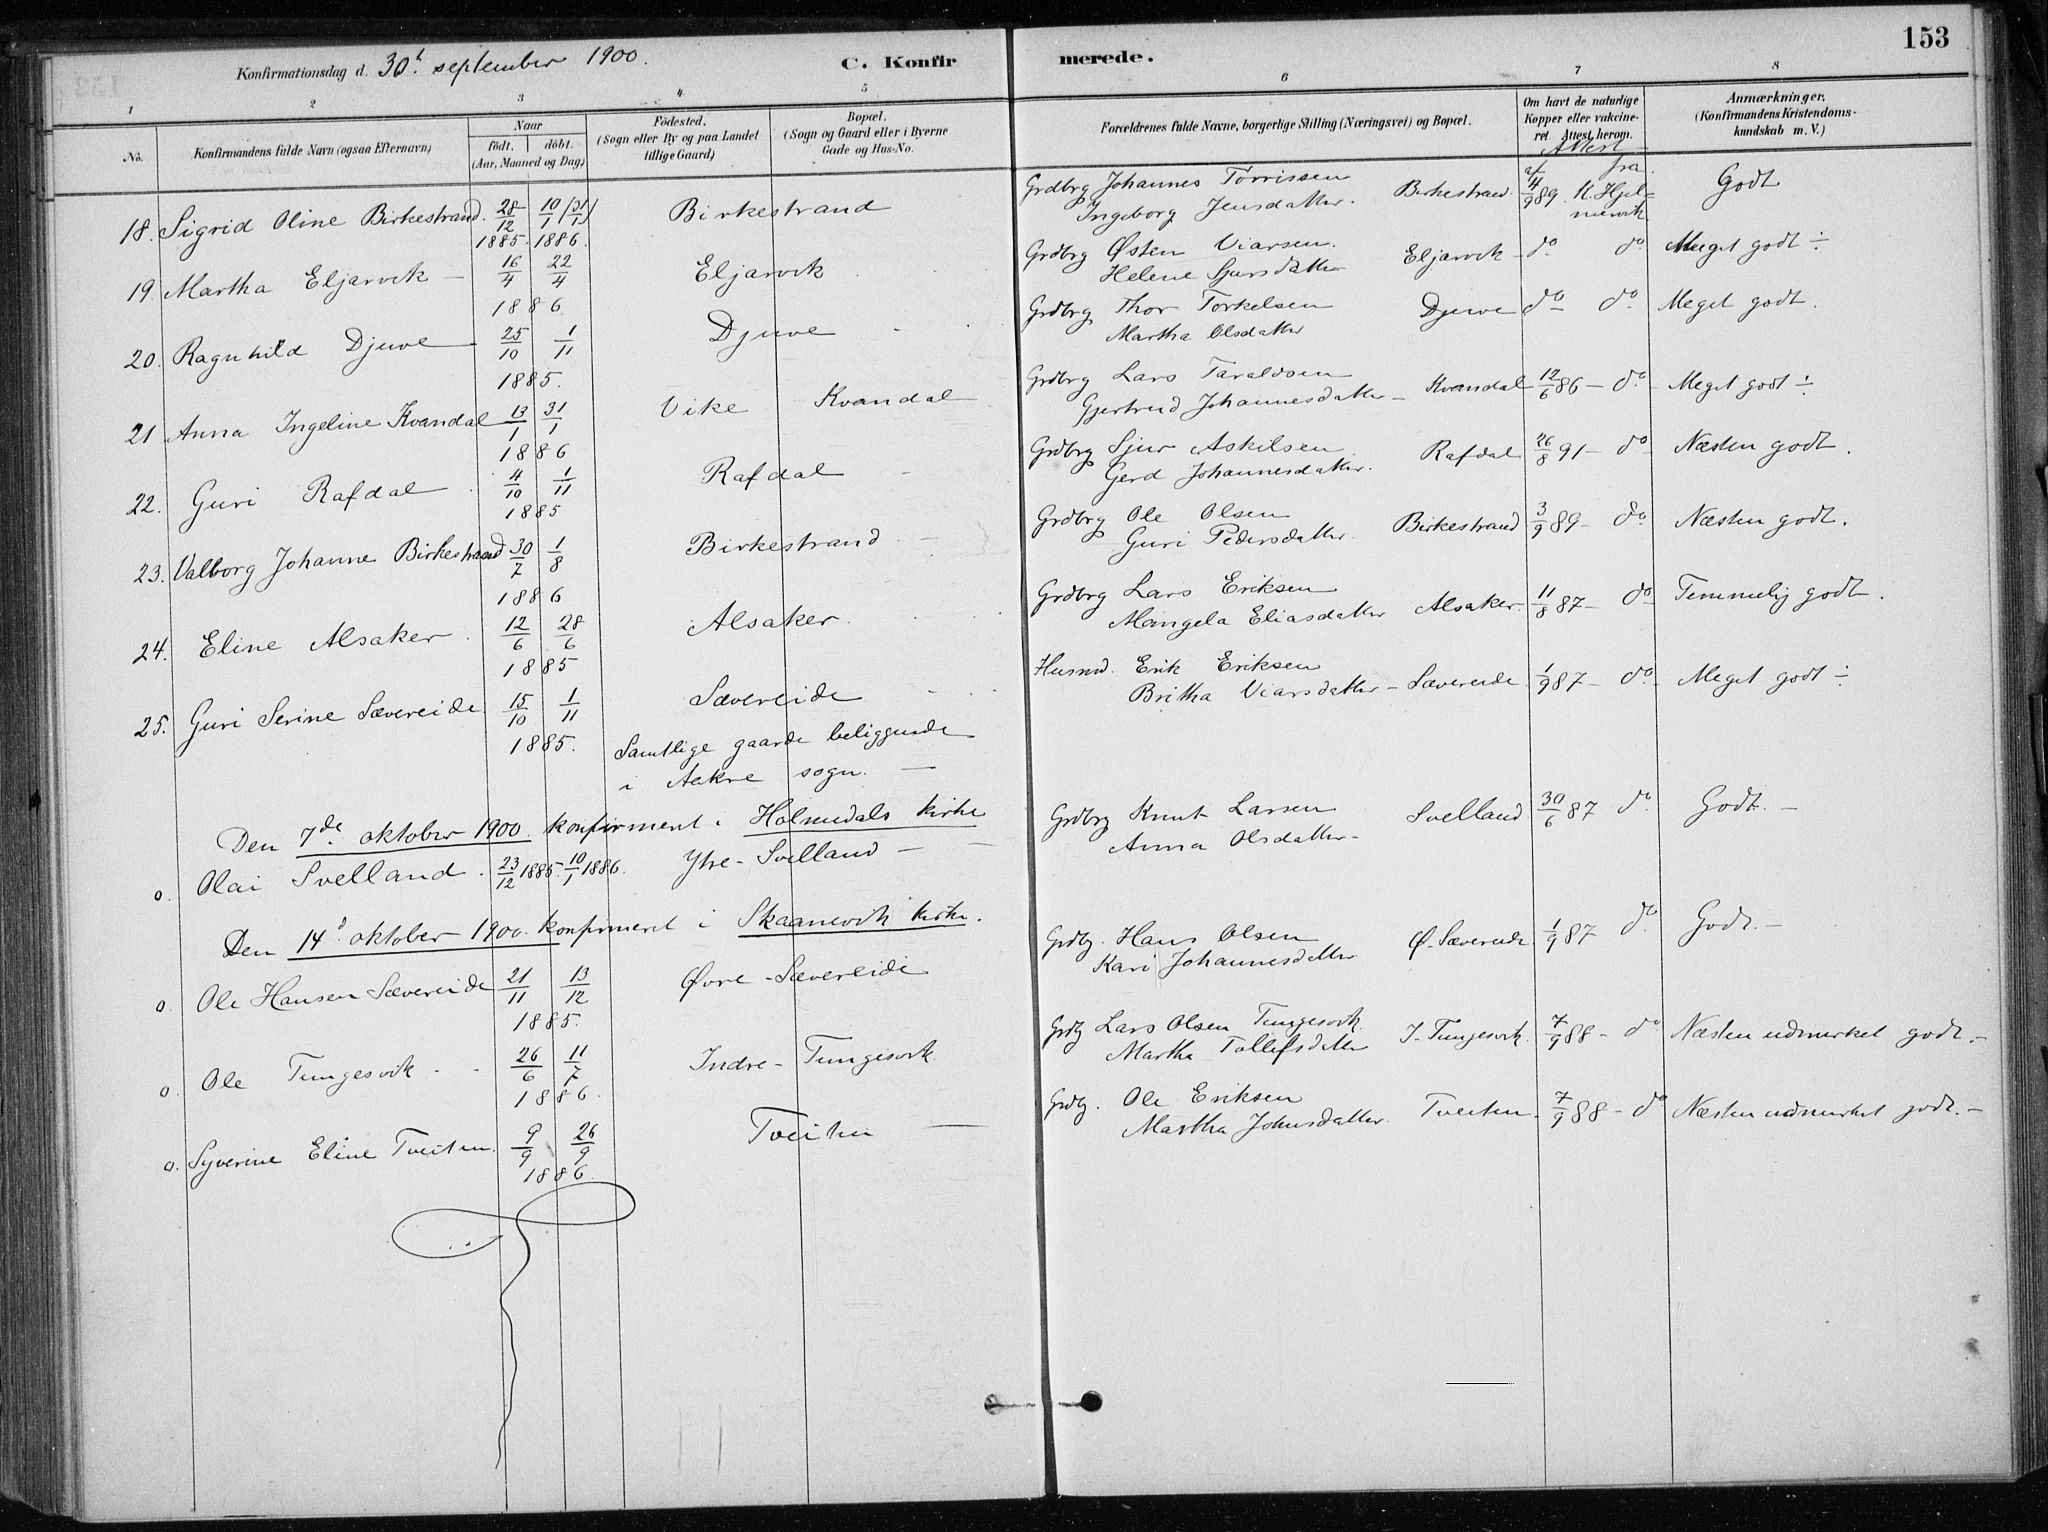 153
Konfirmationsdag d. 30t september 1900. C. Konfirmerede.
1 2 3 4 5 6 7 8
No. Konfirmandens fulde Navn (ogsaa Efternavn) Naar født. døbt. (Aar, Maaned og Dag) Fødested. (Sogn eller By og paa Landet tillige Gaard) Bopæl. (Sogn og Gaard eller i Byerne Gade og Hus-No. Forældrenes fulde Navne, borgerlige Stilling (Næringsvei) og Bopæl. Om havt de naturlige Kopper eller vakcineret. Attest herom. Anmærkninger. (Konfirmandens Kristendomskundskab m. V.)
Attest
af fra
18. Sigrid Oline Birkestrand. 28/12 1885. 10/1 (31/1) 1886. Birkestrand Grdbrg Johannes Torrissen Birkestrand 4/9 89. K. Hjelmervik Godt
Ingeborg Jensdatter.
19. Martha Eljarvik - 16/4 22/4 1886 Eljarvik Grdbrg Østen Viarsen. Eljarvik - do do Meget godt ÷
Helene Sjursdatter
20. Ragnhild Djuve 25/10 1/11 1885. Djuve Grdbrg Thor Torkelsen Djuve do do Meget godt.
Martha Olsdatter
21 Anna Ingeline Kvandal 13/1 31/1 1886 Vike Kvandal Grdbrg Lars Taraldsen Kvandal 12/6 86 - do Meget godt ÷
Gjertrud Johannesdatter -
22. Guri Rafdal 4/10 1/11 1885 Rafdal Grdbrg Sjur Askilsen Rafdal 26/8 91 - do Næsten godt.
Gerd Johannesdatter.
23. Valborg Johanne Birkestrand 30/7 1/8 1886 Birkestrand - Grdbrg Ole Olsen Birkestrand 3/9 89 - do Næsten godt.
Guri Pedersdatter.
24. Eline Alsaker 12/6 28/6 1885 Alsaker. Grdbrg Lars Eriksen Alsaker - 11/8 87 - do Temmelig godt.
Mangela Eliasdatter
25. Guri Serine Sævereide 15/10 1/11 1885. Sævereide Husmd. Erik Eriksen Sævereide 1/9 87 - do Meget godt ÷
Britha Viarsdatter -
Samtlige gaarde beliggende
i Aakre sogn. -
Den 7de oktober 1900. konfirmeret i Holmedals kirke
o. Olai Svelland. 23/12 1885. 10/1 1886. Ytre - Svelland - Grdbrg Knut Larsen Svelland 30/6 87 do Godt. -
Anna Olsdatter -
Den 14d oktober 1900. konfirmeret i Skaanevik kirke.
o. Ole Hansen Sævereide 21/11 13/12 1885. Øvre - Sævereide Grdbg. Hans Olsen Ø. Sævereide 1/9 87 do Godt. -
Kari Johannesdatter
o. Ole Tungesvik - - 26/6 11/7 1886. Indre - Tungesvik Grdbg Lars Olsen Tungesvik I - Tungesvik. 7/9 88 - do Næsten udmerket godt. -
Martha Tollefsdatter
o. Syverine Eline Tveiten. 9/9 26/9 1886. Tveiten - Grdbg. Ole Eriksen Tveiten. 7/9 88 - do Næsten udmerket godt. -
Martha Johnsdatter.